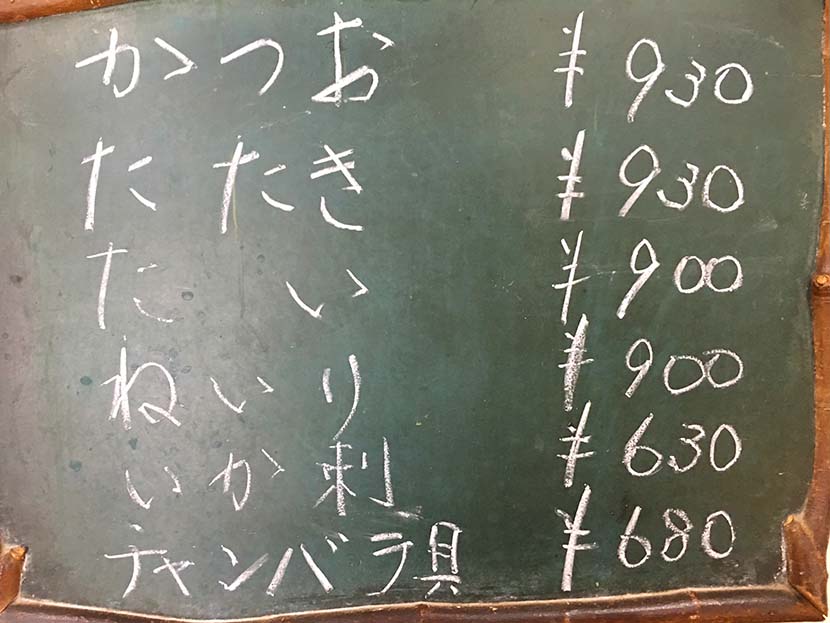 かつお ¥930
たたき ¥930
たい ¥900
ねいり ¥900
いか刺 ¥630
チャンバラ貝 ¥680